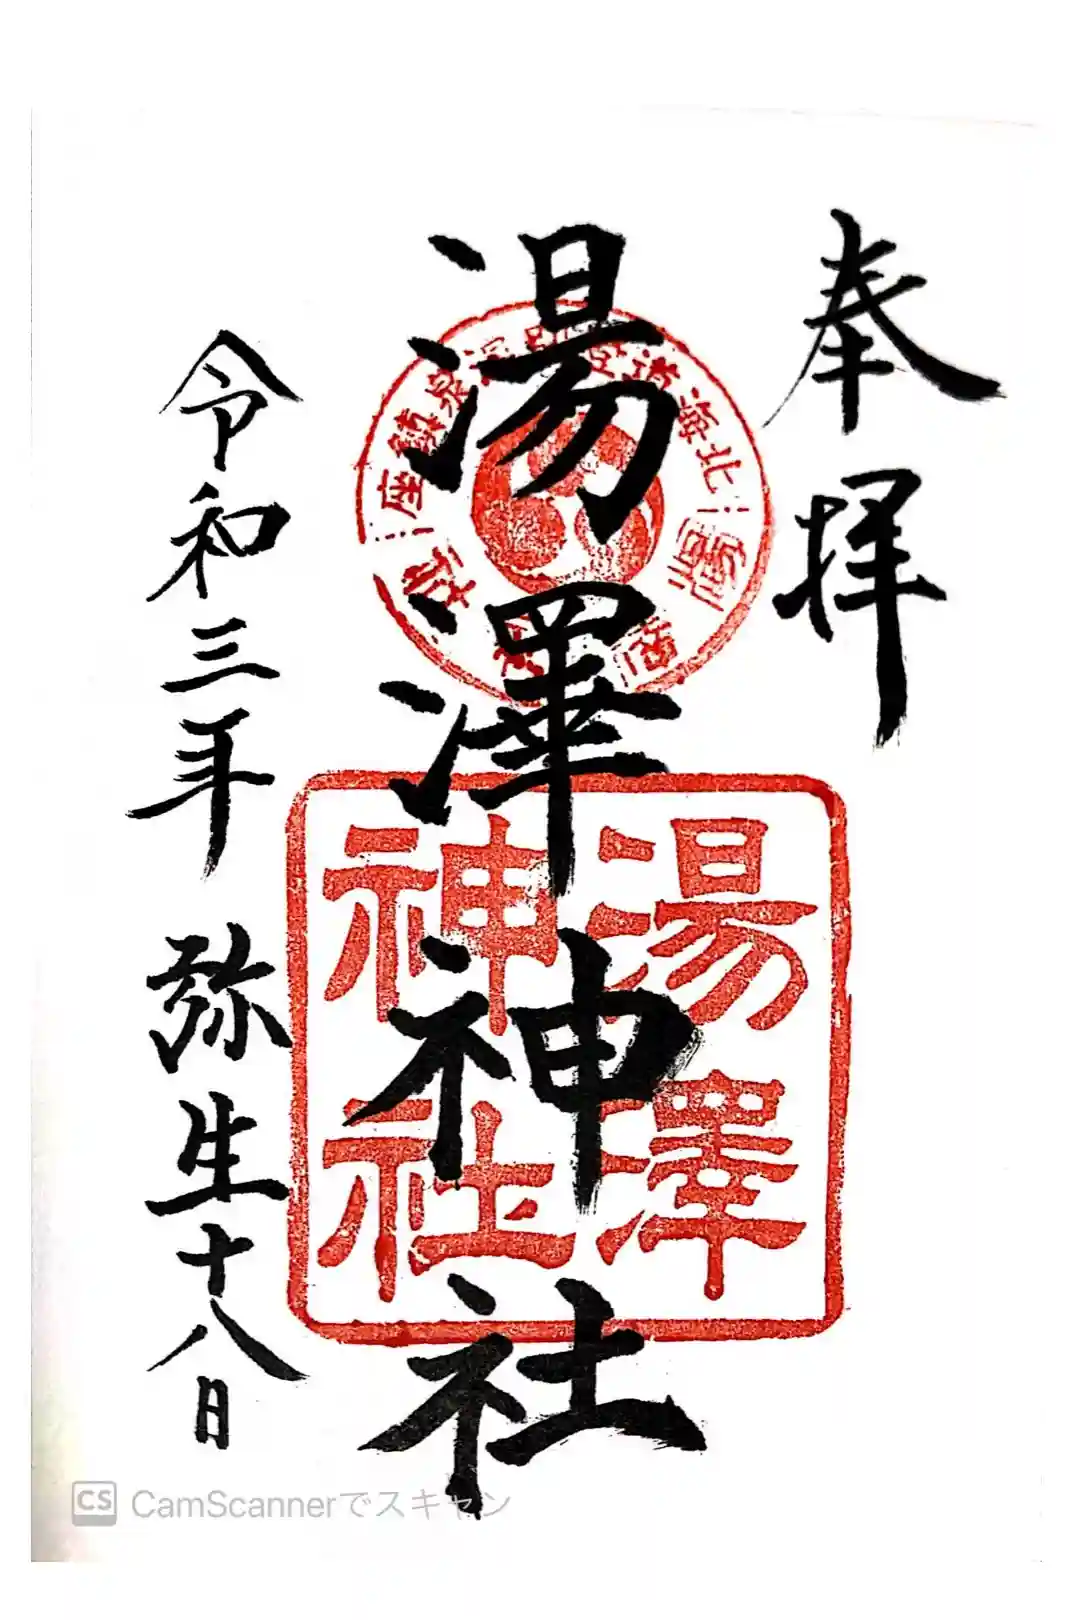 奉拝
湯澤神社
湯澤
神社
令和三年 弥生十八日
CamScannerでスキャン